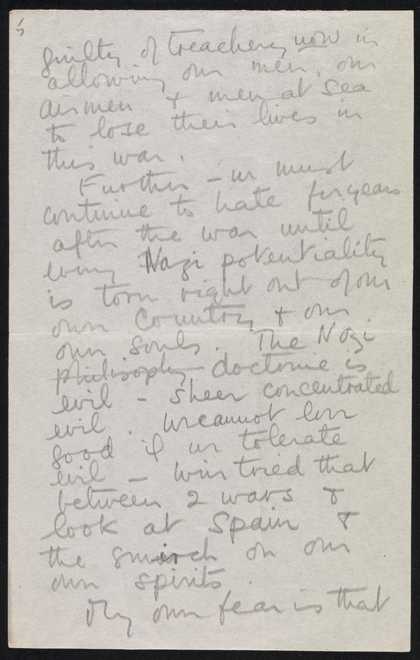 5
guilty of treachery now in
allowing our men, our
airmen & men at sea
to lose their lives in
this war.
Further – we must
continue to hate for years
after the war until
every Nazi potentiality
is torn right out of our
own Country & our
own souls. The Nazi
philosophy doctorine is
evil – sheer concentrated
evil. We cannot love
good if we tolerate
evil – We tried that
between 2 wars &
look at Spain &
the smirch on our
own spirits
My own fear is that